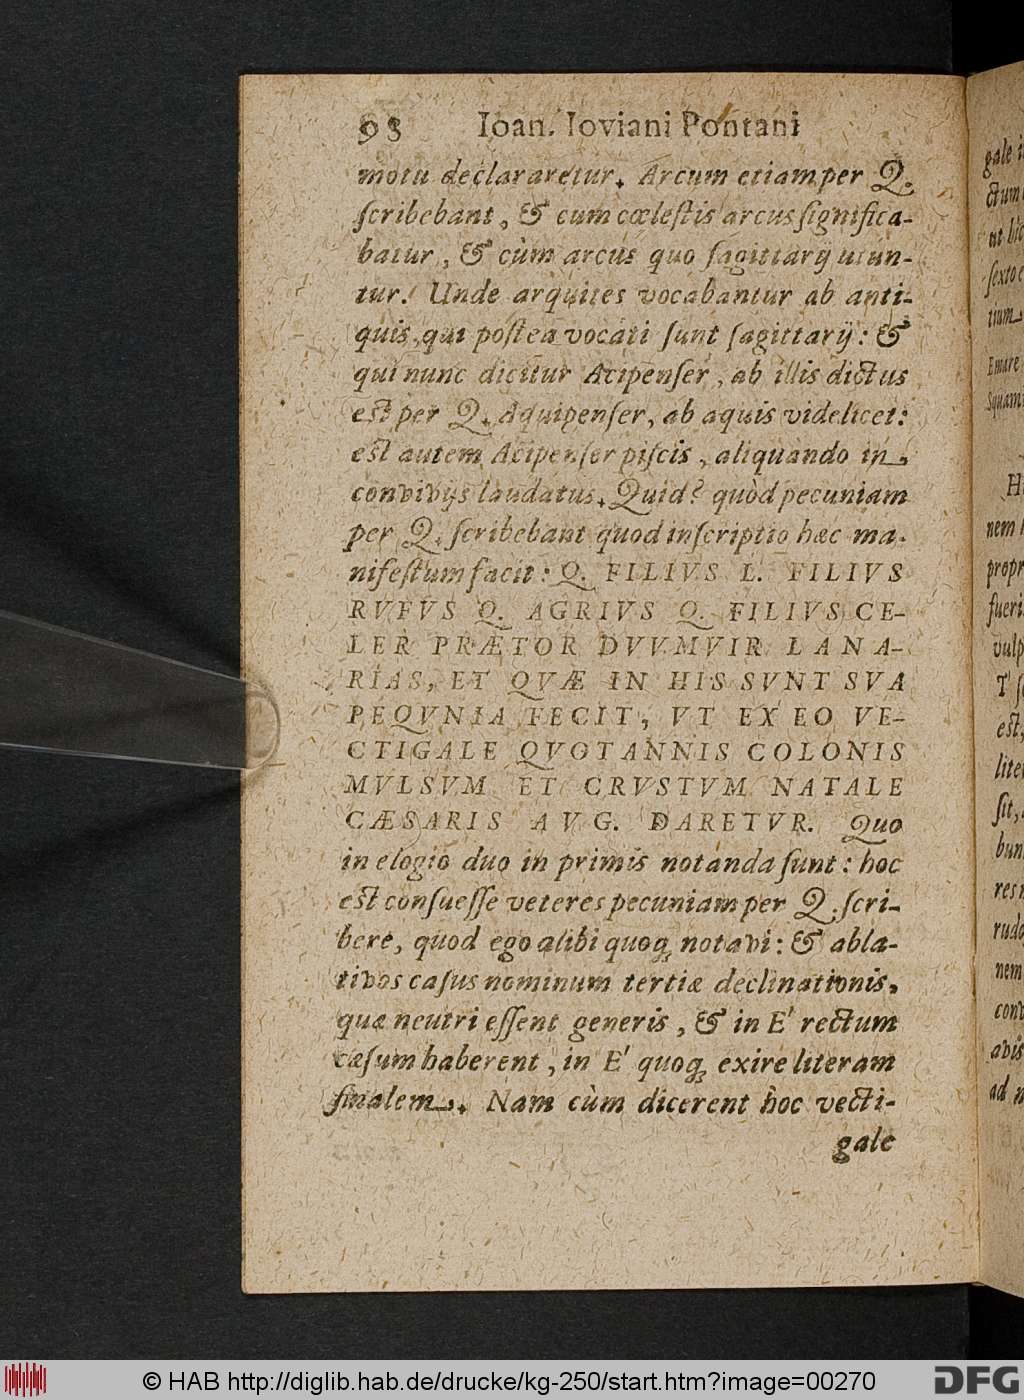 98 Ioan. Ioviani Pontani
motu declararetur. Arcum etiam per Q.
ſcribebant, & cum cœleſtis arcus ſignifica-
batur, & cùm arcus quo ſagittarij utun-
tur. Unde arquites vocabantur ab anti-
quis, qui poſtea vocati ſunt ſagittarij: &
qui nunc dicitur Acipenſer, ab illis dictus
est per Q. Aquipenſer, ab aquis videlicet:
est autem Acipenſer piſcis, aliquando in
convivijs laudatus. Quid? quòd pecuniam
per Q. ſcribebant quod inſcriptio hæc ma-
nifeſtum facit: Q. FILIVS L. FILIVS
RVFVS Q. AGRIVS Q. FILIVS CE-
LER PRÆTOR DVVMVIR LANA-
RIAS, ET QVÆ IN HIS SVNT SVA
PEQVNIA FECIT, VT EX EO VE-
CTIGALE QVOTANNIS COLONIS
MVLSVM ET CRVSTVM NATALE
CÆSARIS AVG. DARETVR. Quo
in elogio duo in primis notanda ſunt: hoc
est conſueſſe veteres pecuniam per Q. ſcri-
bere, quod ego alibi quoq; notavi: & abla-
tivos caſus nominum tertiæ declinationis,
quæ neutri eſſent generis, & in E' rectum
cæſum haberent, in E' quoq; exire literam
finalem. Nam cùm dicerent hoc vecti-
gale
gale
ctum
ut
ſexto
tium
Emare
Squam
H
nem
propr
fueri
vulp
T
est,
lite
ſit,
bun
res
rudo
nem
conv
avis
ad
© HAB http://diglib.hab.de/drucke/kg-250/start.htm?image=00270
DFG